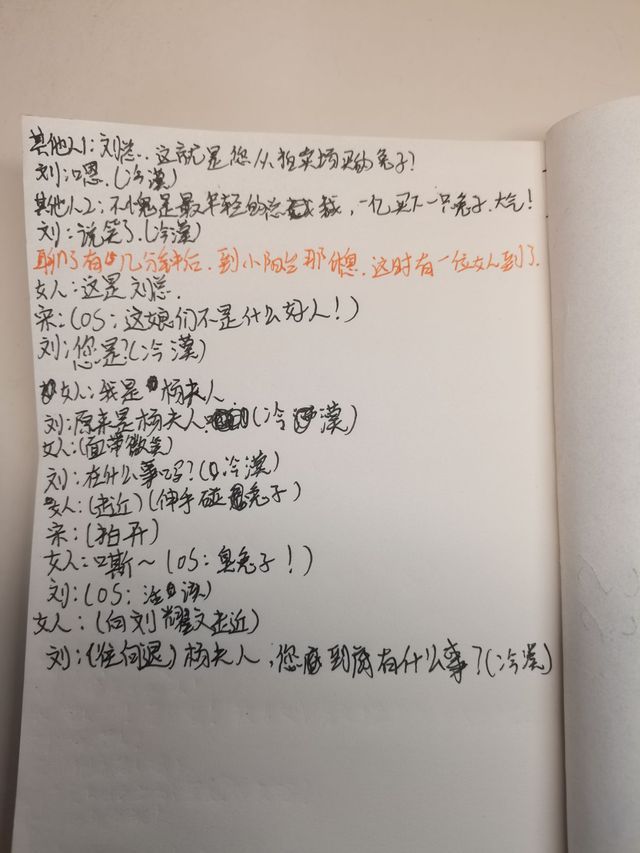 其他人1:刘总..这就是您从拍卖场买的兔子?
刘:嗯.(冷漠)
其他人2:不愧是最年轻的总裁,一亿买下一只兔子.大气!
刘:说笑了.(冷漠)
聊了有几分钟后.到小阳台那休息.这时有一位女人到了.
女人:这是刘总.
宋:(OS:这娘们不是什么好人!)
刘:您是?(冷漠)
女人:我是杨夫人
刘:原来是杨夫人(冷漠)
女人:(面带微笑)
刘:在什么事吗?(冷漠)
女人:(走近)(伸手碰兔子)
宋:(拍开)
女人:嘶~(OS:臭兔子!)
刘:(OS:活)
女人:(向刘耀文走近)
刘:(往向退)杨夫人,您到底有什么事?(冷漠)